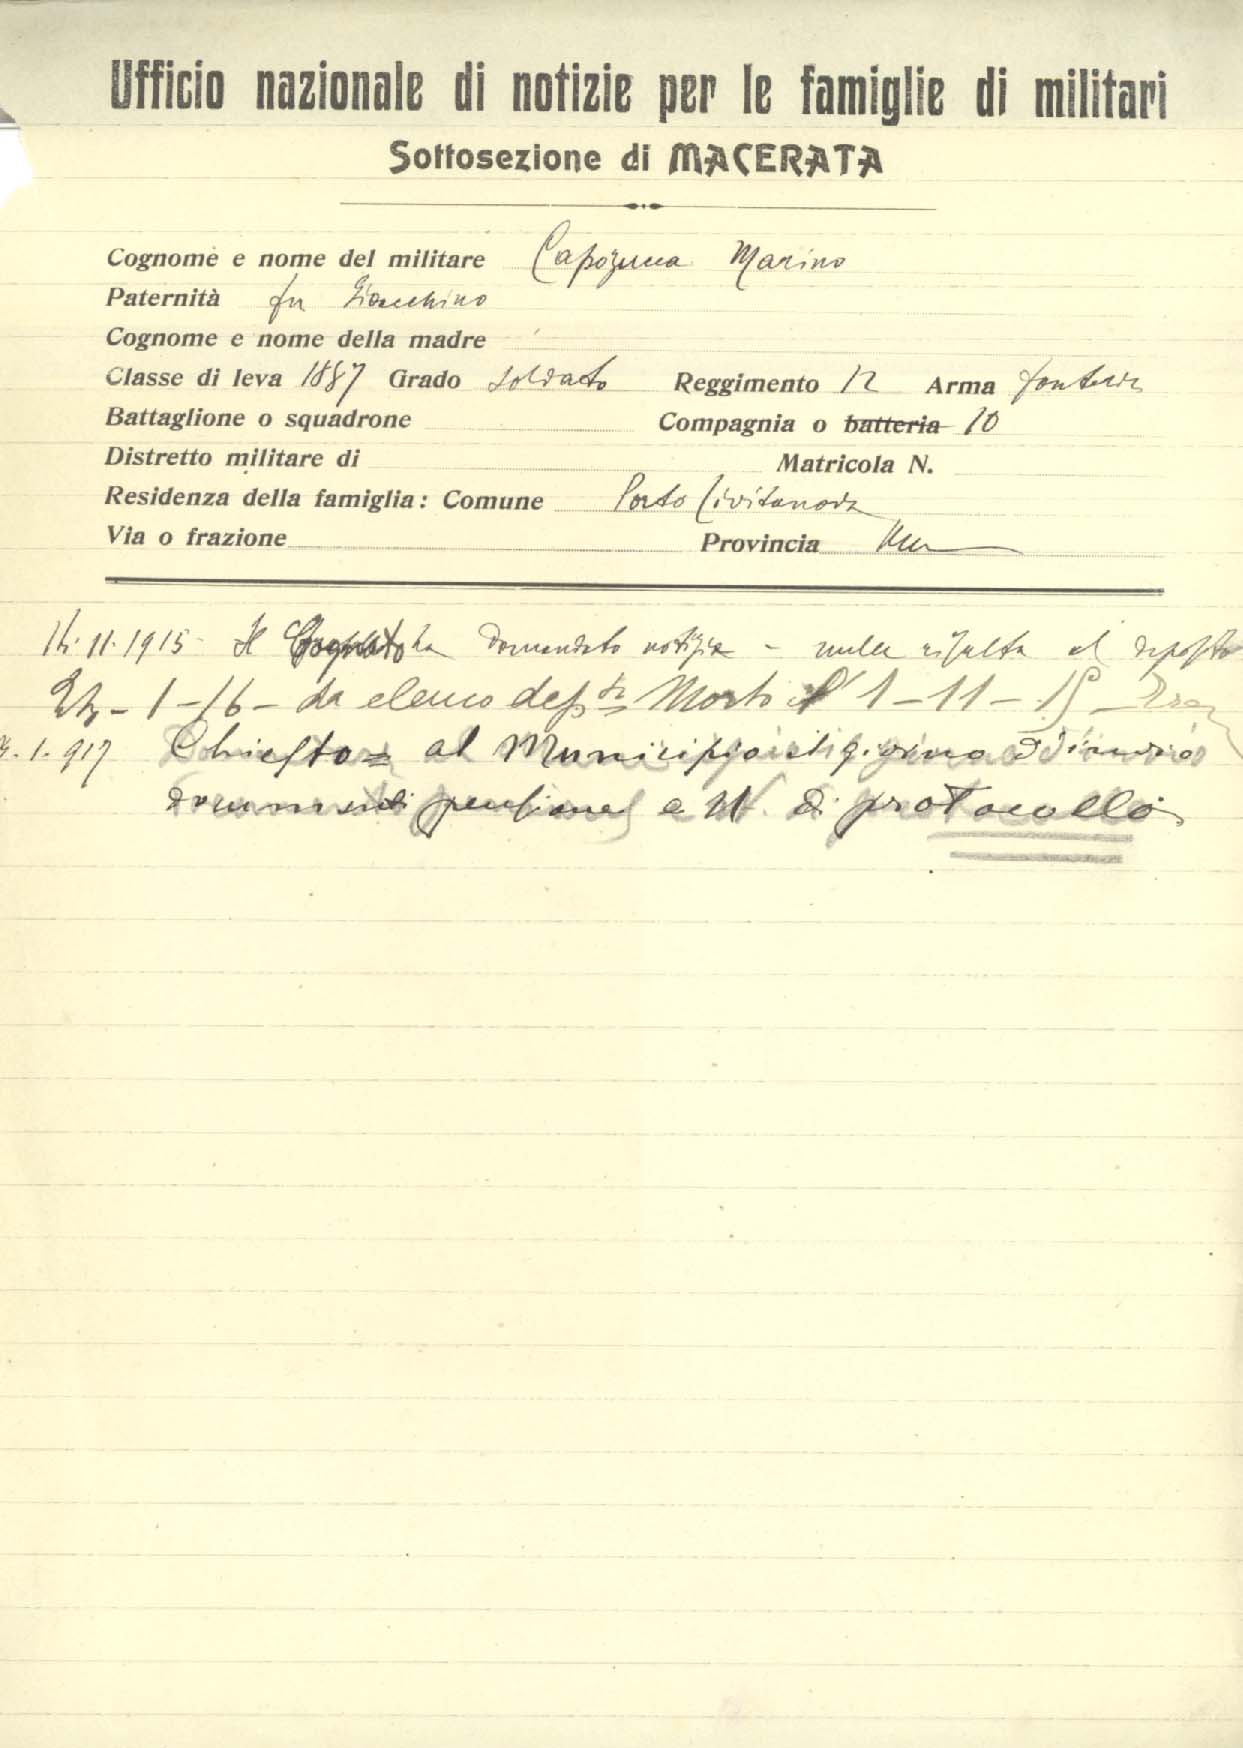 Ufficio nazionale di notizie per le famiglie di militari
Sottosezione di MACERATA
Cognome e nome del militare Capozucca Marino
Paternità fu Giacchino
Cognome e nome della madre
Classe di leva 1887 Grado soldato Reggimento 12 Arma fanteria
Battaglione o squadrone Compagnia o batteria 10
Distretto militare di Matricola N.
Residenza della famiglia: Comune Porto Civitanova
Via o frazione Provincia
11.1915 - Il Cognato ha domandato notizie - nulla risulta al deposito
1-16 - da elenco dep.to Morto il 1-11-15
1.917 Chiesto al Municipio
documenti pensione e N. di protocollo